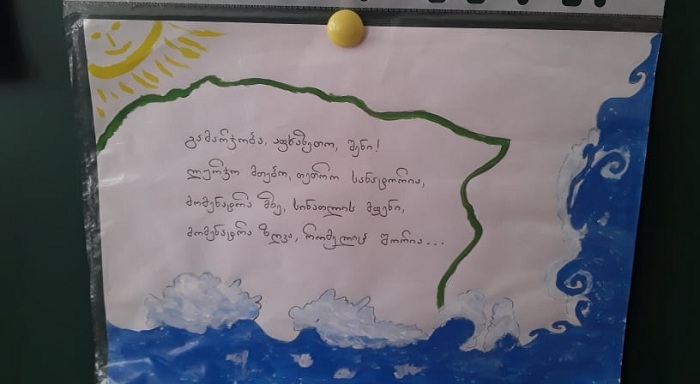 გამარჯობა, აფხაზეთო, შენი!
ლურჯო მთებო, თეთრო სანატორია,
მომენატრა მზე, სინათლის მფენი,
მომენატრა ზღვა, რომელიც შორია...